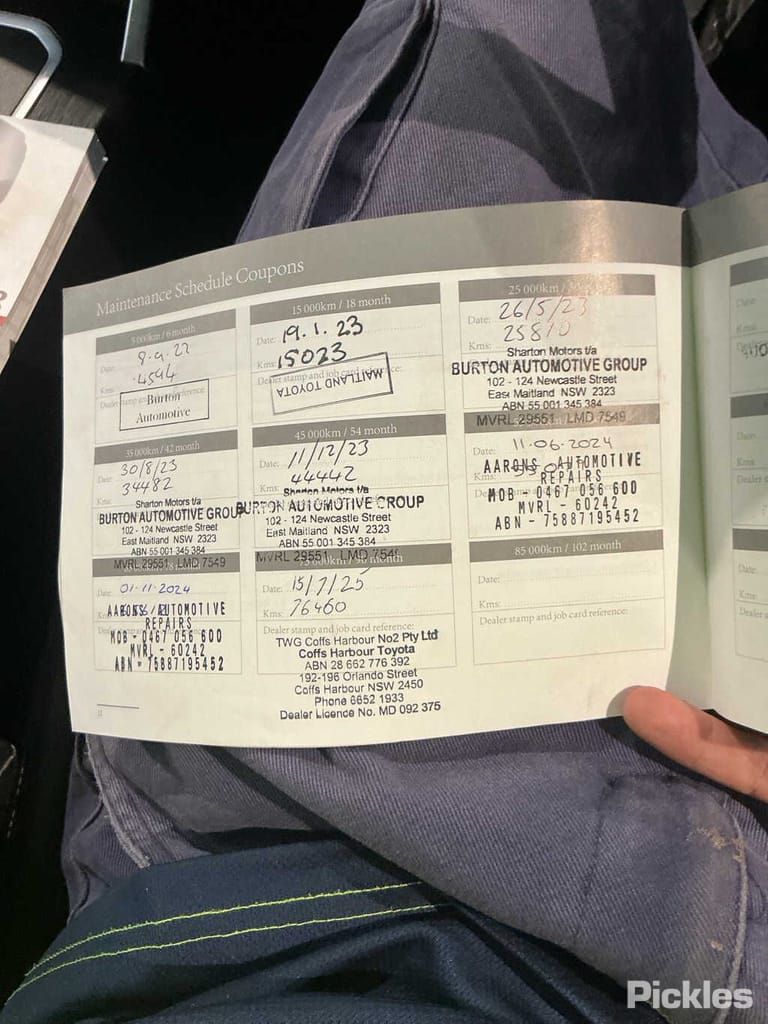 Maintenance Schedule Coupons
5 000km / 6 month
Date: 8.9.22
Kms: 4594
Dealer stamp and job card reference:
Burton
Automotive
15 000km / 18 month
Date: 19.1.23
Kms: 15023
Dealer stamp and job card reference:
MAITLAND TOYOTA
25 000km /
Date: 26/5/23
Kms: 25810
Sharton Motors t/a
BURTON AUTOMOTIVE GROUP
102 - 124 Newcastle Street
East Maitland NSW 2323
ABN 55 001 345 384
MVRL 29551 LMD 7549
35 000km / 42 month
Date: 30/8/23
Kms: 34482
Sharton Motors t/a
BURTON AUTOMOTIVE GROUP
102 - 124 Newcastle Street
East Maitland NSW 2323
ABN 55 001 345 384
MVRL 29551 LMD 7549
45 000km / 54 month
Date: 11/12/23
Kms: 44442
Sharton Motors t/a
BURTON AUTOMOTIVE GROUP
102 - 124 Newcastle Street
East Maitland NSW 2323
ABN 55 001 345 384
MVRL 29551 LMD 7549
Date: 11-06-2024
Kms:
AARONS AUTOMOTIVE
REPAIRS
MOB - 0467 056 600
MVRL - 60242
ABN - 75887195452
Date: 01-11-2024
AARONS AUTOMOTIVE
REPAIRS
MOB - 0467 056 600
MVRL - 60242
ABN - 75887195452
Date: 15/7/25
Kms: 76460
Dealer stamp and job card reference:
TWG Coffs Harbour No2 Pty Ltd
Coffs Harbour Toyota
ABN 28 662 776 392
192-196 Orlando Street
Coffs Harbour NSW 2450
Phone 6652 1933
Dealer Licence No. MD 092 375
85 000km / 102 month
Date:
Kms:
Dealer stamp and job card reference:
Date
Kms
Date:
Kms:
Dealer s
Date:
Kms:
Dealer s
Pickles